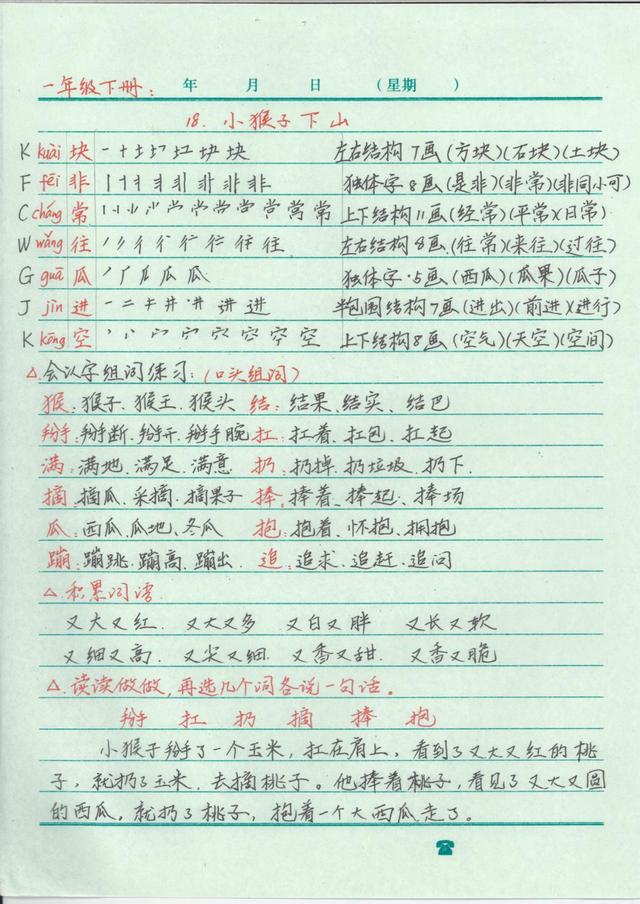 一年级下册: 年 月 日 (星期 )
18. 小猴子下山
K kuài 块 丨 十 土 圹 圤 坱 块 左右结构 7画(方块)(石块)(土块)
F fēi 非 非 独体字 8画(是非)(非常)(非同小可)
C cháng 常 常 上下结构 11画(经常)(平常)(日常)
W wǎng 往 往 左右结构 8画(往常)(来往)(过往)
G guā 瓜 瓜 独体字·5画(西瓜)(瓜果)(瓜子)
J jìn 进 一 二 キ 井 进 进 半包围结构7画(进出)(前进)(进行)
K kōng 空 空 上下结构8画(空气)(天空)(空间)
△会认字组词练习:(口头组词)
猴:猴子、猴王、猴头 结:结果、结实、结巴
掰:掰断、掰开、掰手腕 扛:扛着、扛包、扛起
满:满地、满足、满意 扔:扔掉、扔垃圾、扔下
摘:摘瓜、采摘、摘果子 捧:捧着、捧起、捧场
瓜:西瓜、瓜地、冬瓜 抱:抱着、怀抱、拥抱
蹦:蹦跳、蹦高、蹦出 追:追求、追赶、追问
△积累词语
又大又红 又大又多 又白又胖 又长又软
又细又高 又尖又细 又香又甜 又香又脆
△读读做做,再选几个词各说一句话。
掰 扛 扔 摘 捧 抱
小猴子掰了一个玉米,扛在肩上,看到了又大又红的桃
子,就扔了玉米,去摘桃子。他捧着桃子,看见了又大又圆
的西瓜,就扔了桃子,抱着一个大西瓜走了。